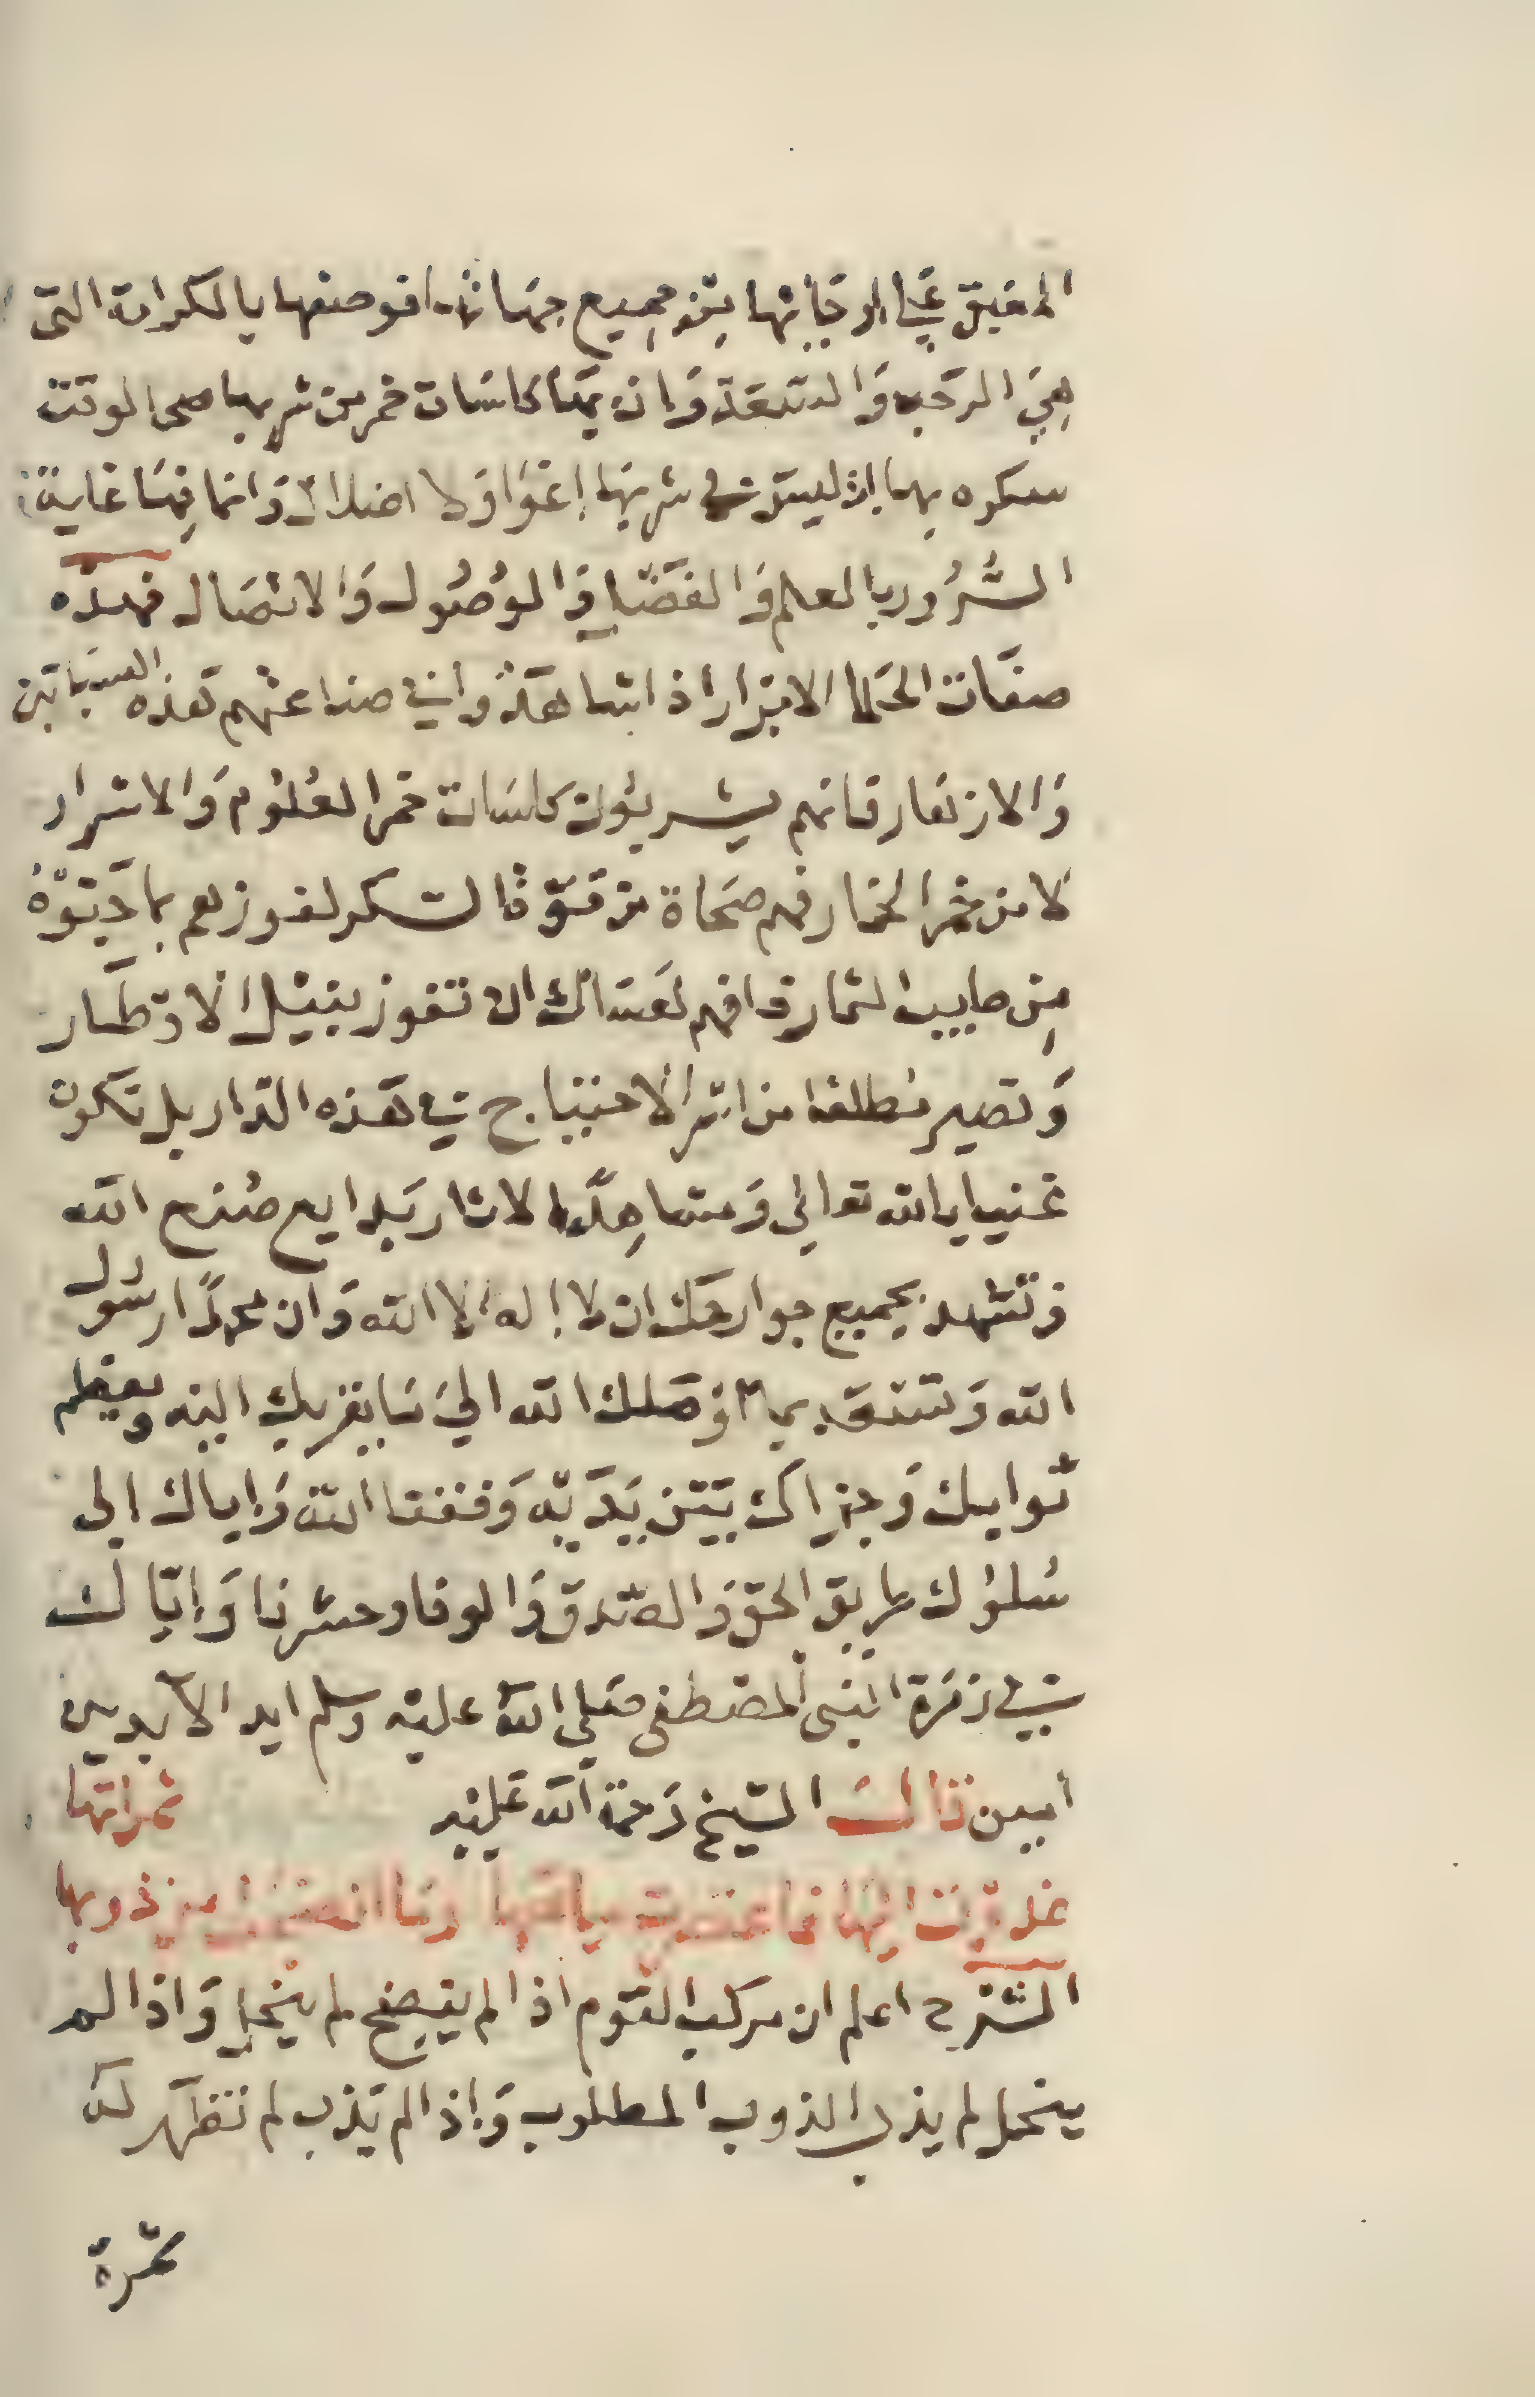 المفيق علي ارجايها من جميع جهاتها فوصفها بالكرامة التي
هي الرحب والسعة وان بها كاسات خمر من شربها صحي الوقت
سكره بها اذ ليس في شربها إغوا ولا اضلال وانما فيها غاية
السُّرُور بالعلم والفضل والوُصُول والاتصال فهذه
صفات الحكما الابرار اذا شاهدوا في صناعتهم هذه السباتين
والازهار فانهم يشربون كاسات خمر العلوم والاسرار
لا من خمر الخمار فهم صحاة من قوة السكر لفوزهم بما جنوه
من طايب الثمار فافهم لعلك ان تفوز بنيل الاوطار
وتصير مطلقا من اسر الاحتياج في هذه الدار بل تكون
غنيا بالله تعالي ومشاهدا لاثار بدايع صُنع الله
وتشهد بجميع جوارحك ان لا إله إلا الله وان محمدًا رسول
الله وتسعد بما اوصلك الله الي ما يقربك اليه ويعظم
ثوابك وجزاك بين يديه وفقنا الله واياك الى
سُلوُك طريق الحق والصدق والوفا وحشرنا وإيّاك
في زمرة النبي المصطفى صلي الله عليه وسلم ابد الابدين
امين قال الشيخ رحمة الله عليه ثمراتها
غدوت اليها فاعتصرت مياهها وما انعقدت من ذوبها
الشرح اعلم ان مركب القوم اذا لم ينضج لم ينحل واذا لم
ينحل لم يذب الذوب المطلوب وإذا لم يذب لم تظهر له
ثمرة